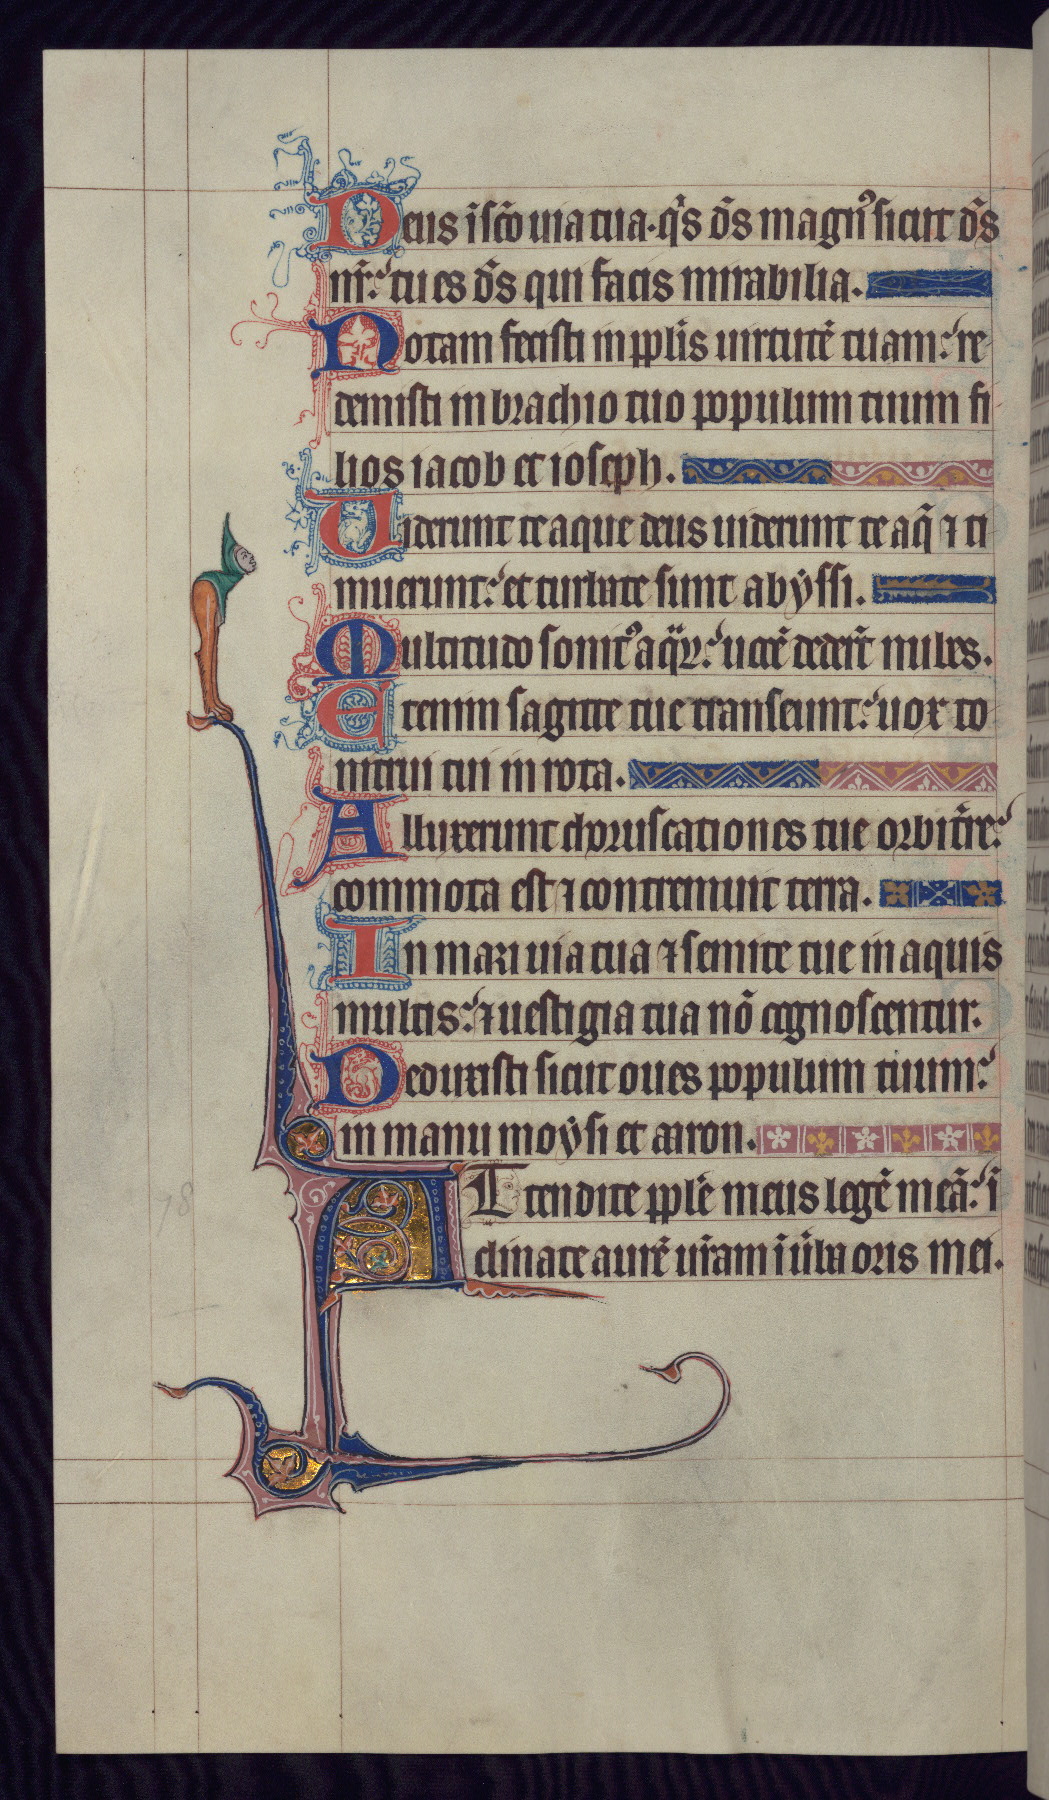 Deus ī sc̄o uia tua. q̄s d̄s magn᷒ sicut d̄s
nr̄: tu es d̄s qui facis mirabilia.
Notam fecisti in pp̄lis uirtutē tuam: re
demisti in brachio tuo populum tuum fi
lios iacob et ioseph.
Uiderunt te aque deus uiderunt te aq̄ ⁊ ti
muerunt: et turbate sunt abẏssi.
Multitudo sonit᷒ aq̄ꝝ: uocē dedert̄ nubes.
Etenim sagitte tue transeunt: uox to
nitrui tui in rota.
Alluxerunt choruscationes tue orbi t̄re:
commota est ⁊ contremuit terra.
In mari uia tua ⁊ semite tue in aquis
multis: ⁊ uestigia tua nō cognoscentur.
Deduxisti sicut oues populum tuum:
in manu moẏsi et aaron.
Attendite pp̄le meus legē meā: ī
clinate aurē ur̄am ī ūba oris mei.
78